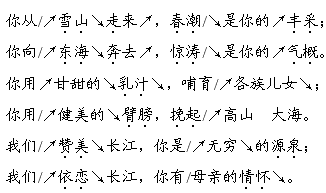 你从/↗雪山↘走来↗，春潮/↘是你的↗丰采；
你向/↗东海↘奔去↗，惊涛/↘是你的↗气概。
你用↗甘甜的↘乳汁↘，哺育/↗各族儿女↘；
你用/↗健美的↘臂膀，挽起/↗高山　大海。
我们/↗赞美↘长江，你是/↗无穷↘的源泉；
我们/↗依恋↘长江，你有/母亲的情怀↘。